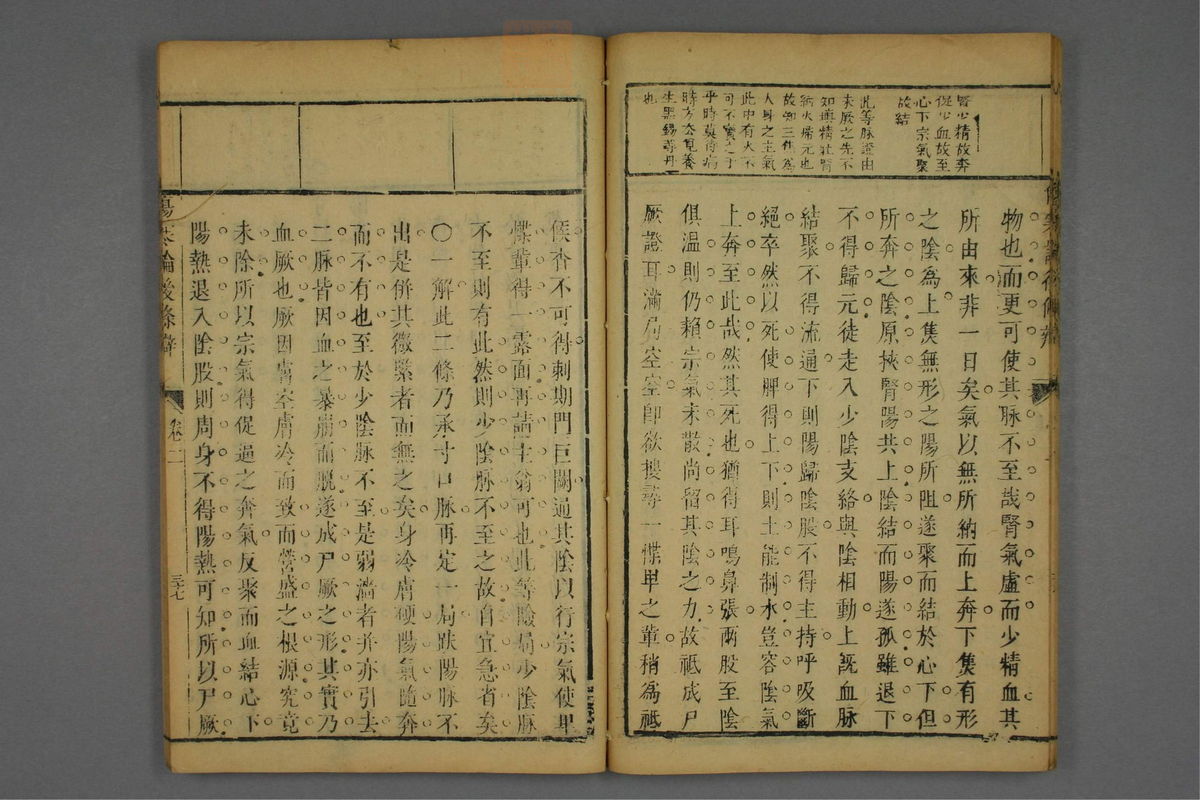 腎少精故奔
促少血故至
心下宗氣聚
故結
此等脉證由
未厥之先不
知填精壯腎
納火歸元也
故知三焦為
人身之主氣
此中有火不
可不實之于
平時莫待病
時方去覓養
生黑錫等丹
也
物也而更可使其脉不至哉腎氣虛而少精血其
所由來非一日矣氣以無所納而上奔下隻有形
之陰為上隻無形之陽所阻遂聚而結於心下但
所奔之陰原挾腎陽共上陰結而陽遂孤雖退下
不得歸元徒走入少陰支絡與陰相動上既血脉
結聚不得流通下則陽歸陰股不得主持呼吸斷
絕卒然以死使脾得上下則土能制水豈容陰氣
上奔至此哉然其死也猶得耳鳴鼻張兩股至陰
俱溫則仍賴宗氣未散尚留其陰之力故祗成尸
厥證耳滿局空空即欲搜尋一慄卑之輩稍為祗
候杳不可得刺期門巨闕通其陰以行宗氣使卑
慄輩得一露面再請主翁可也此等險局少陰脉
不至則有此然則少陰脉不至之故自宜急省矣
○一解此二條乃承寸口脉再定一局趺陽脉不
出是併其微緊者而無之矣身冷膚硬陽氣隨奔
而不有也至於少陰脉不至是弱濇者并亦引去
二脉皆因血之暴崩而脫遂成尸厥之形其實乃
血厥也厥因膚空膚冷而致而營盛之根源究竟
未除所以宗氣得促逼之奔氣反聚而血結心下
陽熱退入陰股則周身不得陽熱可知所以尸厥
卷二
三十七